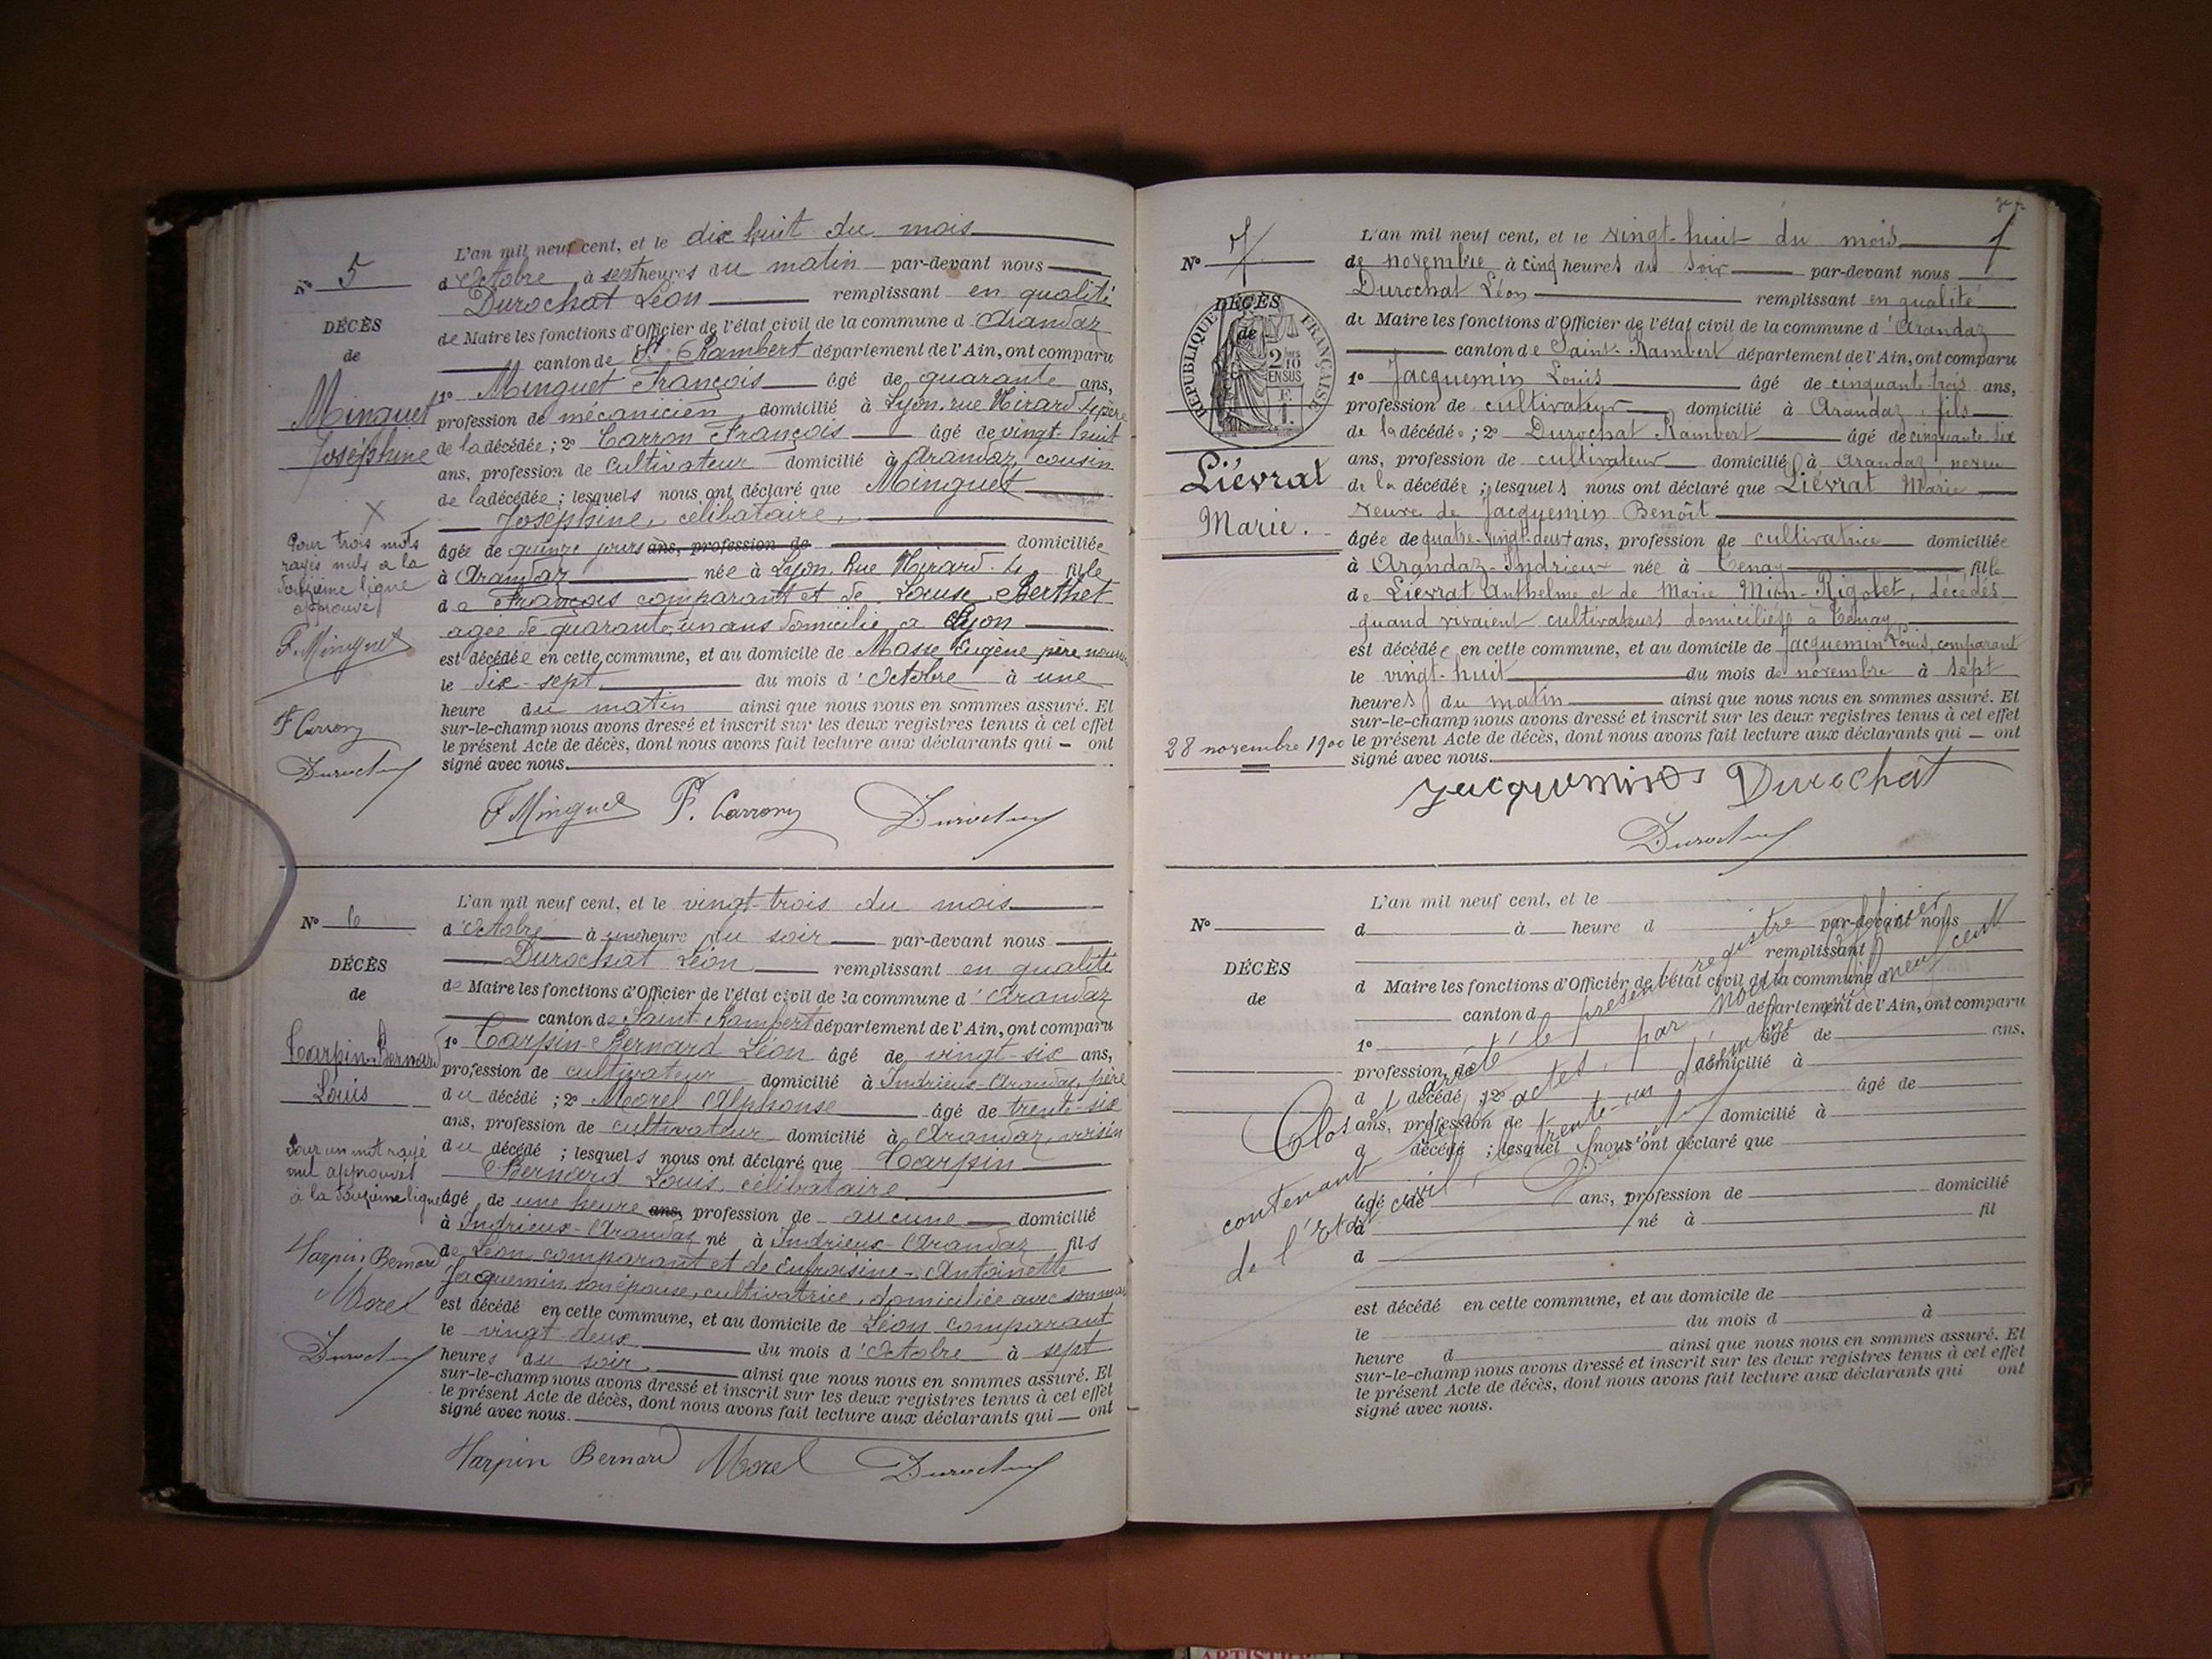 L'an mil neuf cent, et le dix huit du mois
N° 5
d'Octobre à sept heures du matin par-devant nous
Durochat Léon remplissant en qualité
DÉCÈS
de Maire les fonctions d'Officier de l'état civil de la commune d'Arandaz
de
canton de St Rambert département de l'Ain, ont comparu
Minguet
1° Minguet François âgé de quarante ans,
profession de mécanicien, domicilié à Lyon, rue Hérard 4, père
Joséphine
de la décédée ; 2° Carron François âgé de vingt-huit
ans, profession de cultivateur domicilié à Arandaz, cousin
de la décédée ; lesquels nous ont déclaré que Minguet
Joséphine, célibataire,
Pour trois mots
rayés nuls à la
douzième ligne
approuvé
âgée de quinze jours ans, profession de domiciliée
à Arandaz née à Lyon, Rue Hérard 4, fille
de François comparant et de Louise Berthet
agée de quarante-un ans domicilié a Lyon
F. Minguet
est décédée en cette commune, et au domicile de Masse Eugène père
le dix-sept du mois d'Octobre à une
heure du matin ainsi que nous nous en sommes assuré. Et
sur-le-champ nous avons dressé et inscrit sur les deux registres tenus à cet effet
F Carron
le présent Acte de décès, dont nous avons fait lecture aux déclarants qui — ont
Durochat
signé avec nous.
F Minguet F. Carron Durochat
L'an mil neuf cent, et le vingt-trois du mois
N° 6
d'Octobre à une heure du soir par-devant nous
Durochat Léon remplissant en qualité
DÉCÈS
de Maire les fonctions d'Officier de l'état civil de la commune d'Arandaz
de
canton de Saint-Rambert département de l'Ain, ont comparu
Carpin-Bernard
1° Carpin-Bernard Léon âgé de vingt-six ans,
profession de cultivateur domicilié à Indrieux-Arandaz, père
Louis
du décédé ; 2° Morel Alphonse âgé de trente-six
ans, profession de cultivateur domicilié à Arandaz, voisin
du décédé ; lesquels nous ont déclaré que Carpin
Bernard Louis, célibataire
Pour un mot rayé
nul approuvés
à la douzième ligne
âgé de une heure ans, profession de aucune domicilié
à Indrieux-Arandaz né à Indrieux-Arandaz fils
de Léon comparant et de Eufroisine-Antoinette
Harpin Bernard
Jacquemin, son épouse, cultivatrice, domiciliée avec son
Morel
est décédé en cette commune, et au domicile de Léon comparant
le vingt deux du mois d'Octobre à sept
Durochat
heures du soir ainsi que nous nous en sommes assuré. Et
sur-le-champ nous avons dressé et inscrit sur les deux registres tenus à cet effet
le présent Acte de décès, dont nous avons fait lecture aux déclarants qui — ont
signé avec nous.
Harpin Bernard Morel Durochat
L'an mil neuf cent, et le vingt-huit du mois
N° 7
de novembre à cinq heures du soir par-devant nous
Durochat Léon remplissant en qualité
DÉCÈS
de
RÉPUBLIQUE FRANÇAISE
2/10 EN SUS
de Maire les fonctions d'Officier de l'état civil de la commune d'Arandaz
canton de Saint-Rambert département de l'Ain, ont comparu
1° Jacquemin Louis âgé de cinquante-trois ans,
profession de cultivateur domicilié à Arandaz, fils
de la décédée ; 2° Durochat Rambert âgé de cinquante six
ans, profession de cultivateur domicilié à Arandaz, neveu
Liévrat
de la décédée ; lesquels nous ont déclaré que Liévrat Marie
Marie.
veuve de Jacquemin Benoît
âgée de quatre-vingt-deux ans, profession de cultivatrice domiciliée
à Arandaz-Indrieux née à Tenay fille
de Liévrat Anthelme et de Marie Mion-Rigolet, décédés
quand vivaient cultivateurs domiciliés à Tenay
est décédée en cette commune, et au domicile de Jacquemin Louis, comparant
le vingt-huit du mois de novembre à sept
heures du matin ainsi que nous nous en sommes assuré. Et
sur-le-champ nous avons dressé et inscrit sur les deux registres tenus à cet effet
28 novembre 1900
le présent Acte de décès, dont nous avons fait lecture aux déclarants qui — ont
signé avec nous.
Jacquemin Durochat
Durochat
L'an mil neuf cent, et le
N°
d à heure d par-devant nous
remplissant
DÉCÈS
d Maire les fonctions d'Officier de l'état civil de la commune d
de
canton d département de l'Ain, ont comparu
1° âgé de ans,
profession de domicilié à
d décédé ; 2° âgé de
ans, profession de domicilié à
d décédé ; lesquel nous ont déclaré que
âgé de ans, profession de domicilié
à né à fil
d
est décédé en cette commune, et au domicile de
le du mois d à
heure d ainsi que nous nous en sommes assuré. Et
sur-le-champ nous avons dressé et inscrit sur les deux registres tenus à cet effet
le présent Acte de décès, dont nous avons fait lecture aux déclarants qui ont
signé avec nous.
Clos et arrêté le présent registre
contenant sept actes, par nous officier
de l'Etat civil, le trente-un décembre mil neuf cent
Durochat